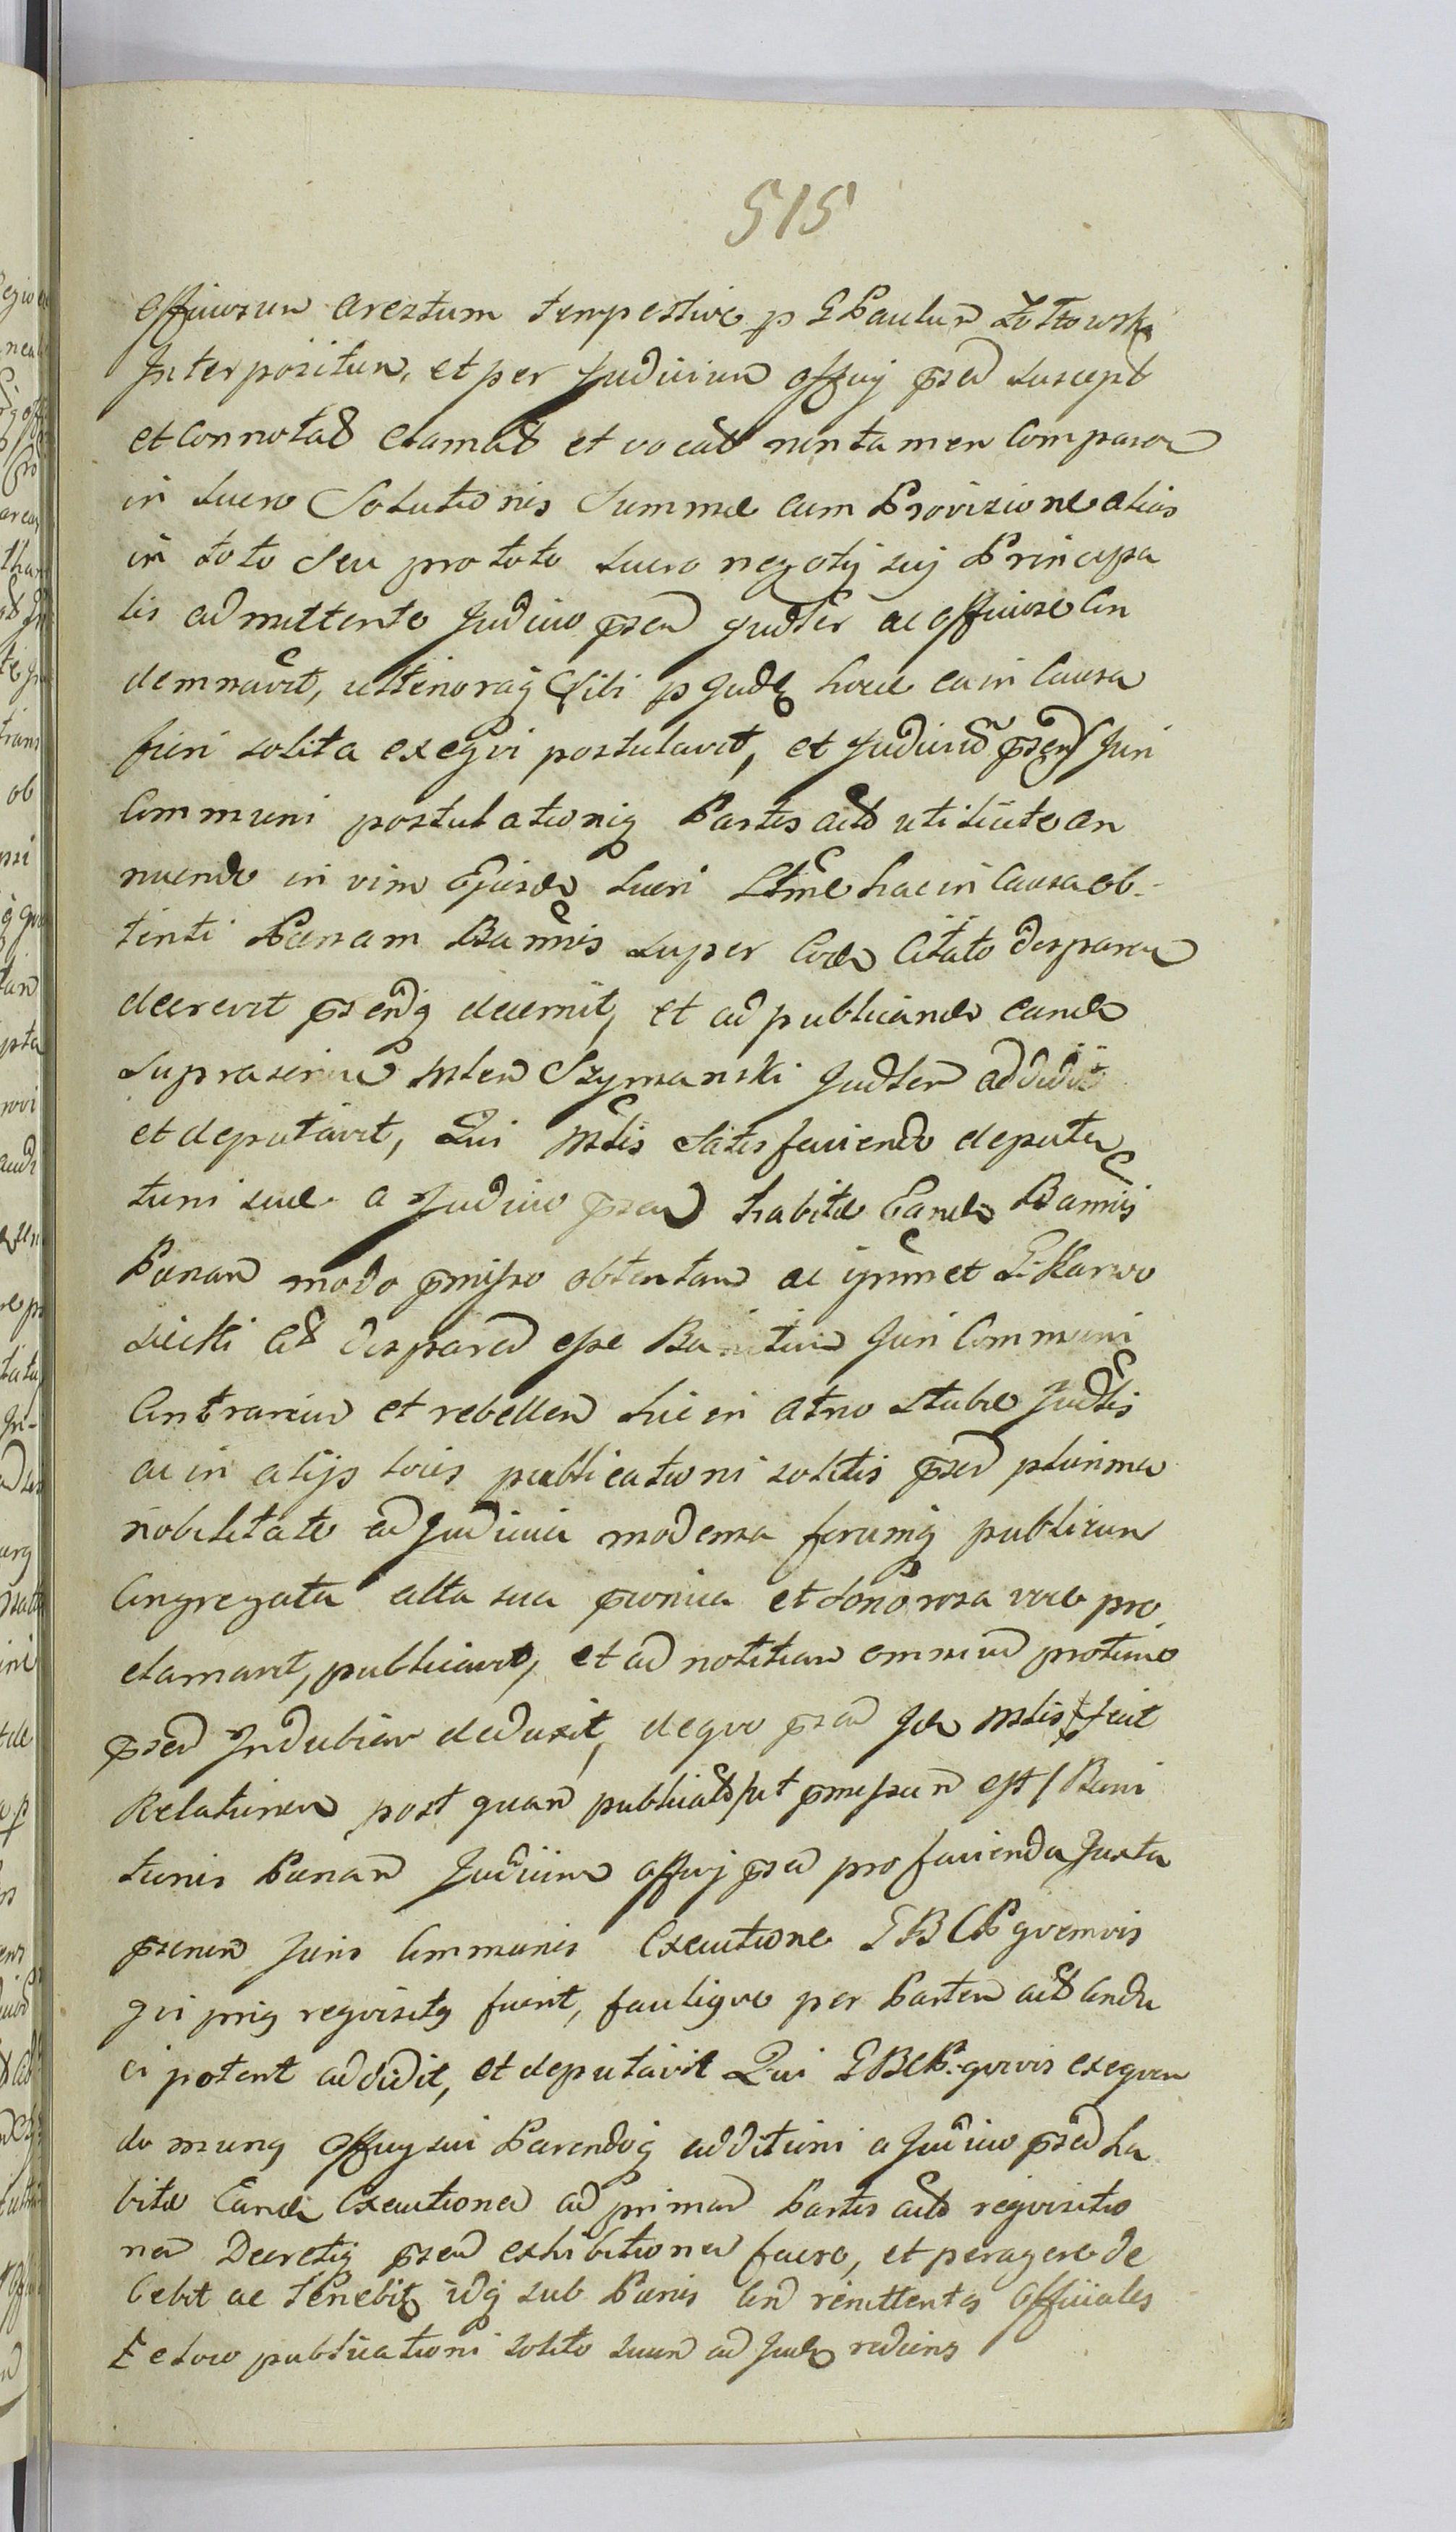 515
officiosum arestum tempestive p G Paulum Żółtowski
Interpositum, et per Judicium officij pṡed suscept
et Connotat clamat et vocat non tamen Comparen
in lucro Solutionis Summae cum Provisione alias
in toto seu pro toto lucro negotij sui Principa
lis admittente Judicio pṡen judter ac officiose Con
demnavit, ulteriorag sibi p Judm hocce ea in Causa
fieri solita exeqvi postulavit, et Judicium pṡens Juri
Communi postulationiq Partis actō uti licite an
nuendo in vim Ejusdē lucri ltme hac in Causa ob-
tenti Paenam Bannis super Eodē Citato disparen
decrevit pṡentiq decernit, et ad publicandē eandē
suprascriptū Mlem Szymanski Judtem addidit
et deputavit, Qui Mtlis Satisfaciendo deputa
tioni suae a Judicio pṡen habitae Eandē Bannis
Paenam modo pmisso obtentam ac ipsumet G. Karwo
siecki Ct disparen esse Banitum Juri Communi
Contrarium et rebellem hic in atrio Stubae Judtis
ac in alijs locis publicationi solitis pṡen plurima
nobilitate ad Judicia moderna forumq publicum
Congregata alta sua pconica et sonorosa voce pro
clamavit, publicavit, et ad notitiam omnium protunc
pṡen Indubiam deduxit, de quo pṡen Idē Mtlis fecit
Relationem post quam publicat/ut pmissum est/Bani
tionis Paenam Judicium officij pṡen pro facienda Juxta
pṡenem Juris Communis Executione GBCP qvemvis
qvi priq reqvisitq fuerit, faciliqve per Partem actō Condu
ci poterit addidit, et deputavit Qui GBCP. qvivis exeqven
do munq officij sui Parendoq additioni a Judicio pṡen ha
bitae Eandē Executionem ad primam Partis actō reqvisitio
nem Decretiq pṡen exhibitionem facere, et peragere de
bebit ac tenebitq idq sub Paenis Con remittentes officiales
E e loco publicationi solito suum ad Judm rediens